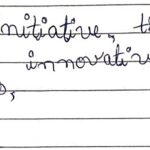 nitiative, t
innovativ
,